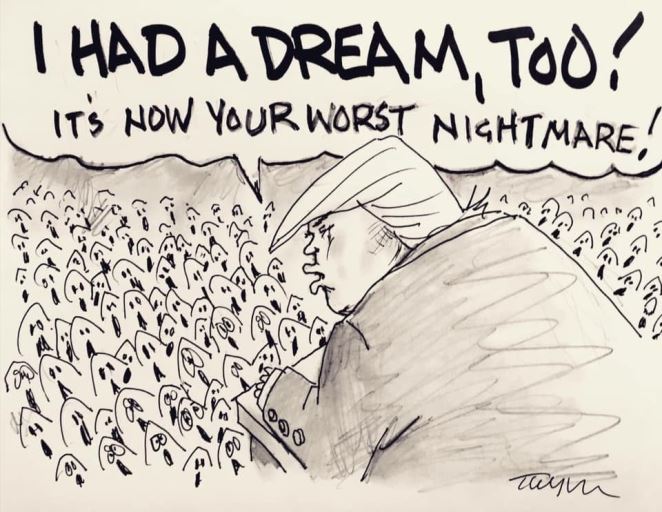 I HAD A DREAM, TOO!
IT'S NOW YOUR WORST NIGHTMARE!